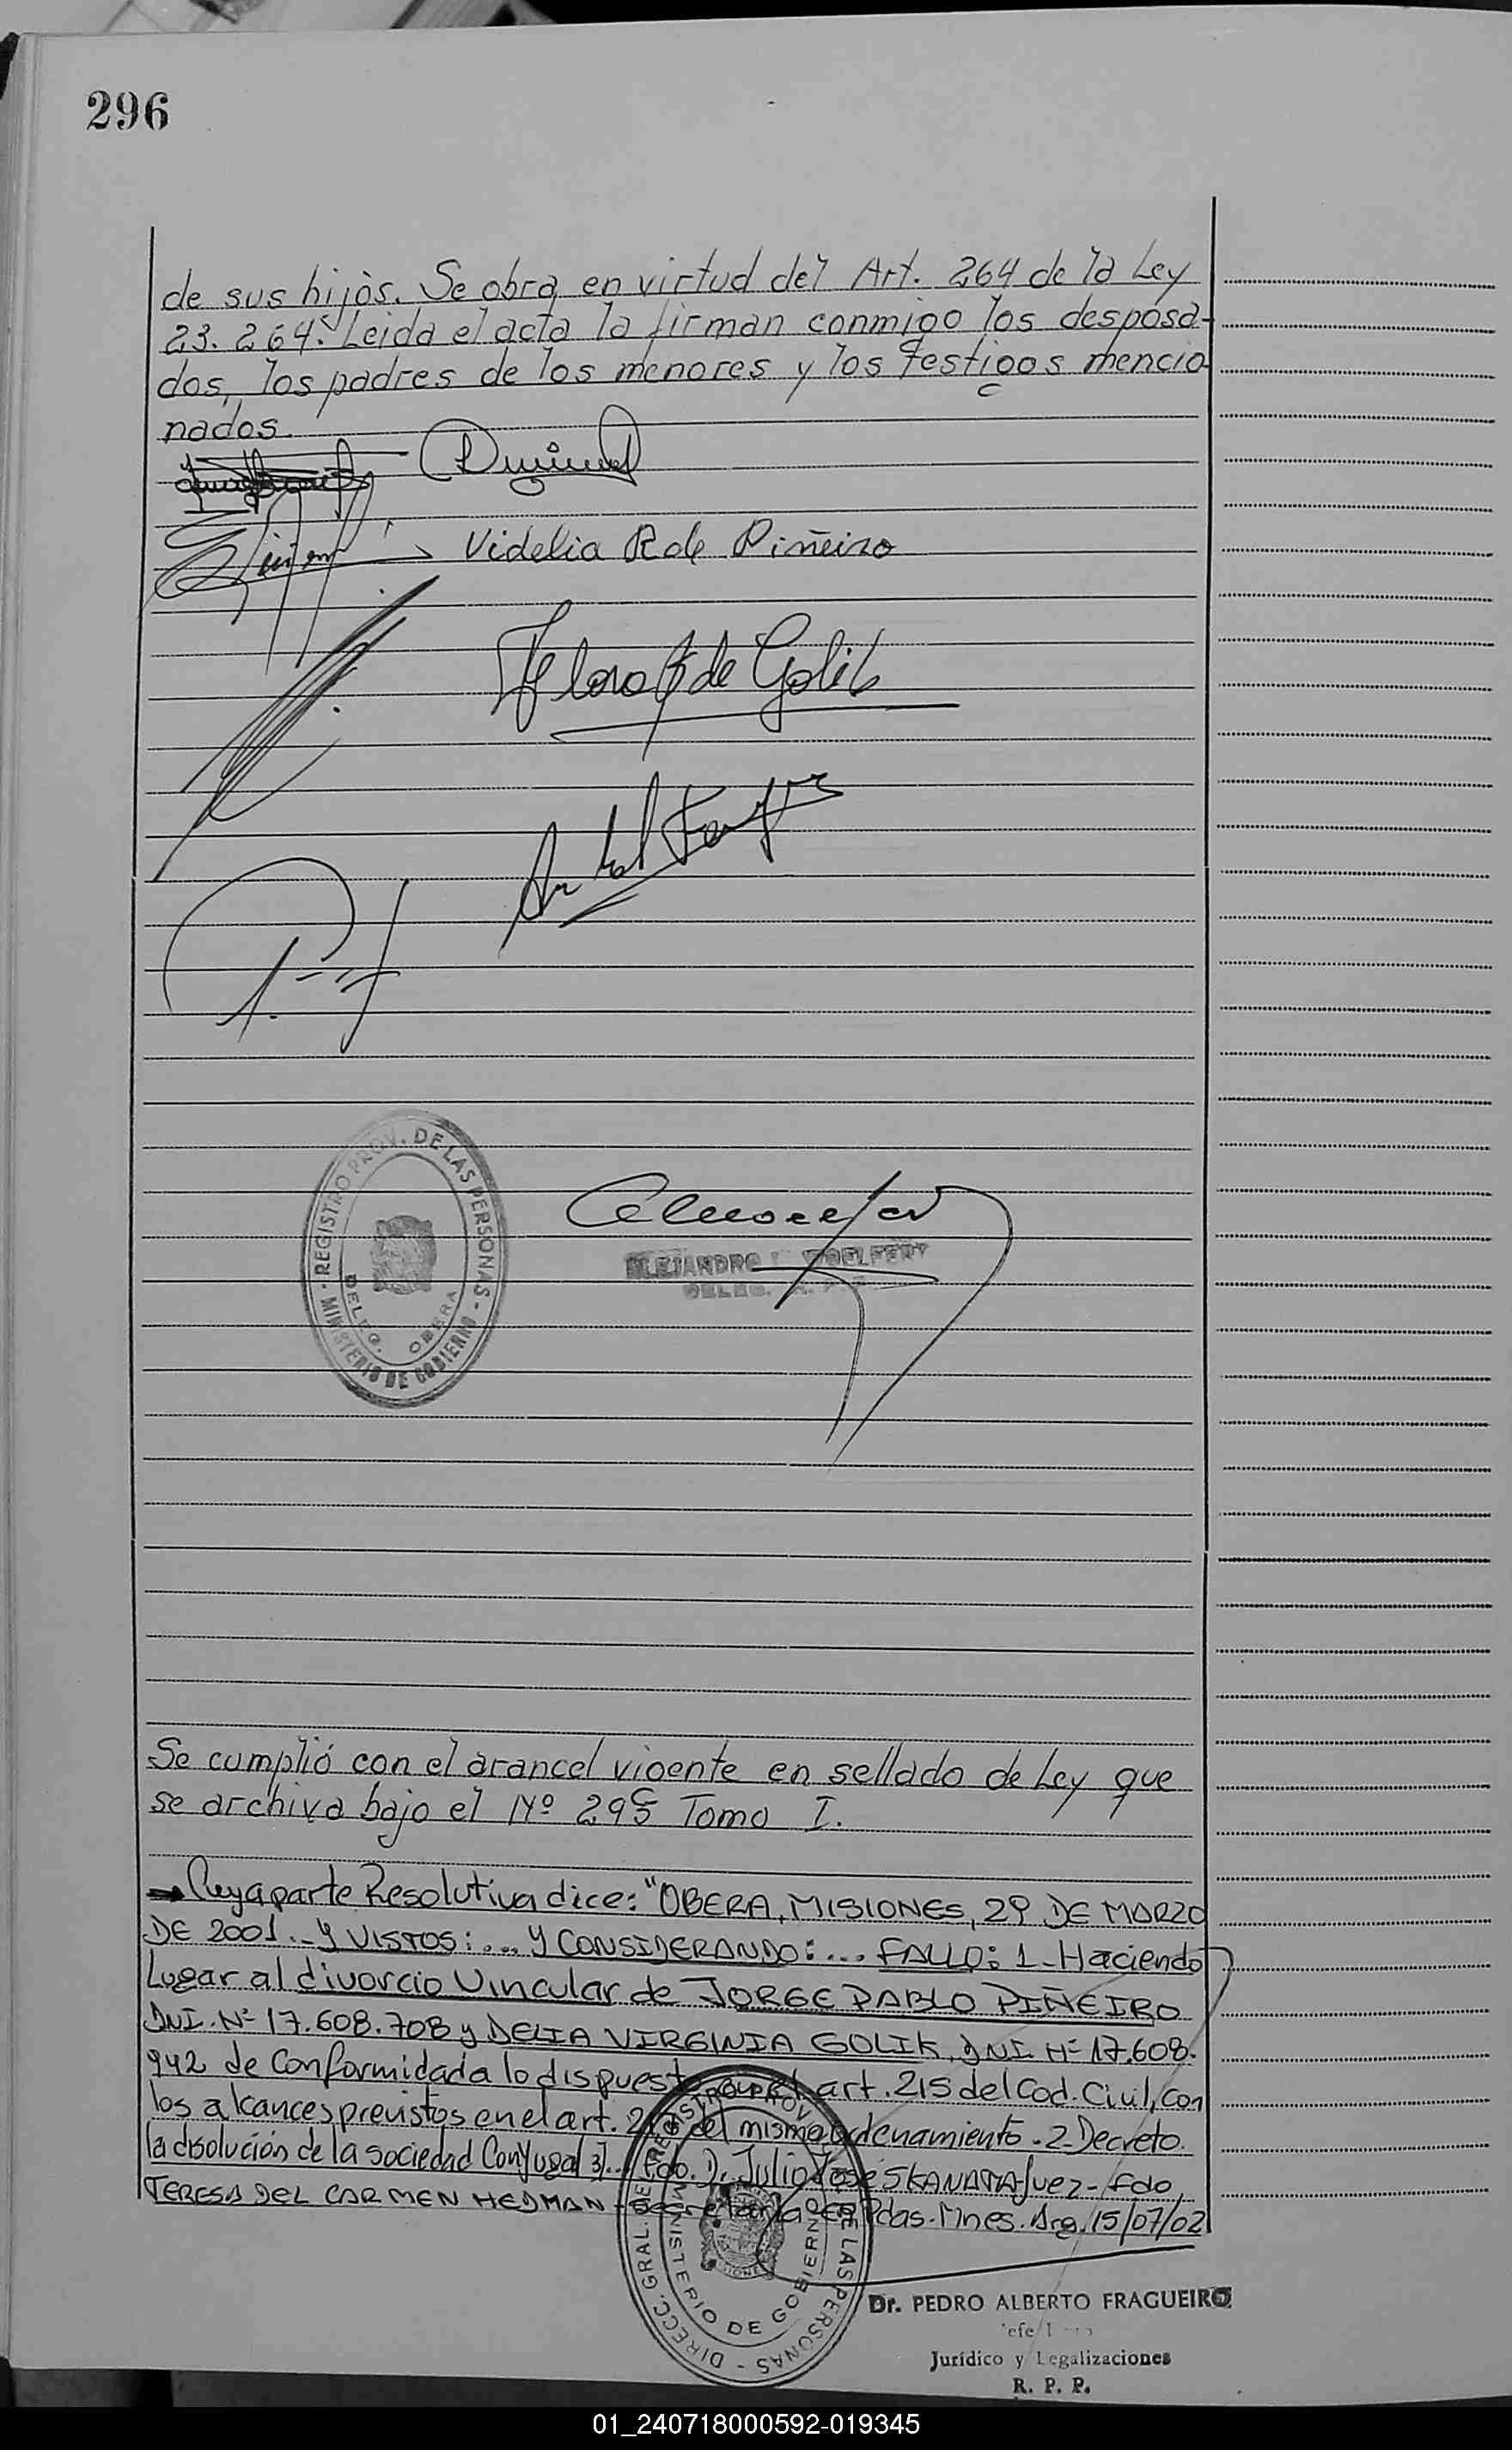 296
de sus hijos. Se obra en virtud del Art. 264 de la Ley
23.264. Leida el acta la firman conmigo los desposa-
dos, los padres de los menores y los testigos mencio
nados.
Videlia R de Piñeiro
Flora de Golik
REGISTRO PROV. DE LAS PERSONAS - MINISTERIO DE GOBIERNO -
DELEG. OBERA
ALEJANDRO
DELEG.
Se cumplió con el arancel vigente en sellado de Ley que
se archiva bajo el Nº 295 Tomo I.
Cuya parte Resolutiva dice: "OBERA, MISIONES, 29 DE MARZO
DE 2001.- Y VISTOS:... Y CONSIDERANDO:... FALLO: 1- Haciendo
Lugar al divorcio Vincular de JORGE PABLO PIÑEIRO
DNI. Nº 17.608.708 y DELIA VIRGINIA GOLIK, DNI Nº 17.608.
942 de Conformidad a lo dispuesto art. 215 del Cod. Civil, con
los alcances previstos en el art. del mismo ordenamiento. 2- Decreto
la disolución de la sociedad Conyugal 3)... Fdo. Dr. Julio José SKANATA Juez - Fdo
TERESA DEL CARMEN HEDMAN - Secretaria Pdas. Mnes. Arg. 15/07/02
DIRECC. GRAL. DE REGISTRO PROV. DE LAS PERSONAS -
MINISTERIO DE GOBIERNO
Dr. PEDRO ALBERTO FRAGUEIRO
Jurídico y Legalizaciones
R. P. P.
01_240718000592-019345